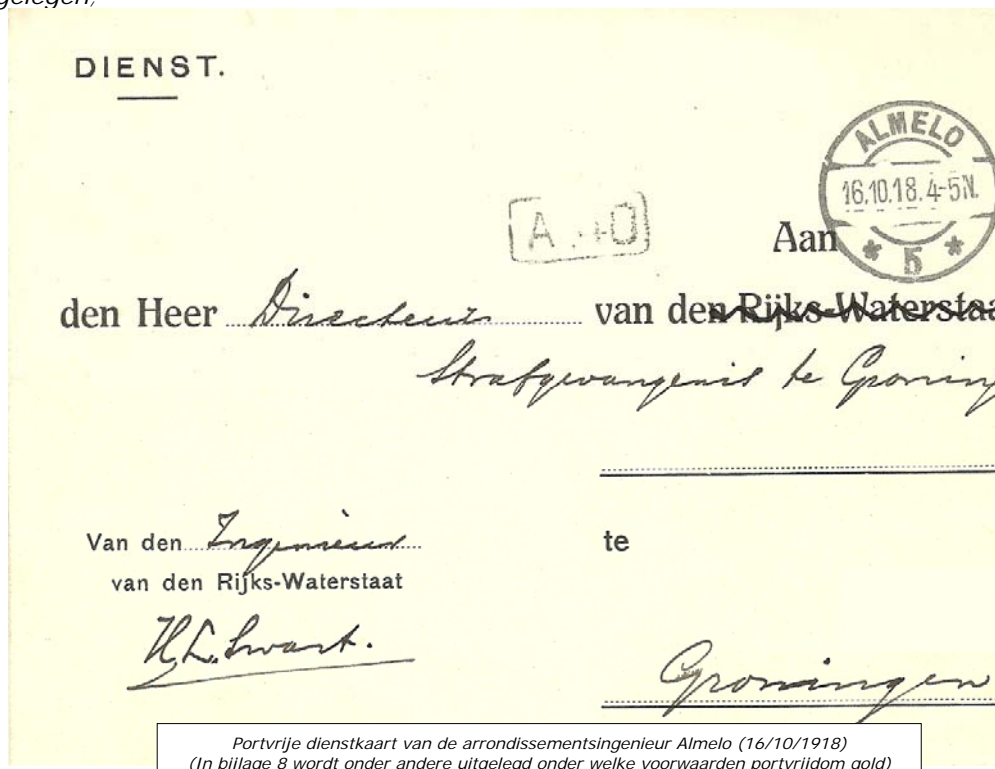 gelegen,
DIENST.
ALMELO
16.10.18.4-5N.
* 5 *
Aan
den Heer Directeur van den Rijks-Waterstaa
Strafgevangenis te Groning
Van den Ingenieur
van den Rijks-Waterstaat
te
H.L. Swart.
Groningen
Portvrije dienstkaart van de arrondissementsingenieur Almelo (16/10/1918)
(In bijlage 8 wordt onder andere uitgelegd onder welke voorwaarden portvrijdom gold)